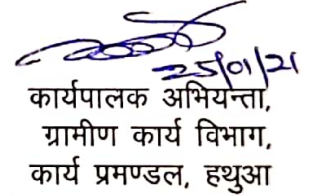 25/01/21
कार्यपालक अभियन्ता,
ग्रामीण कार्य विभाग,
कार्य प्रमण्डल, हथुआ